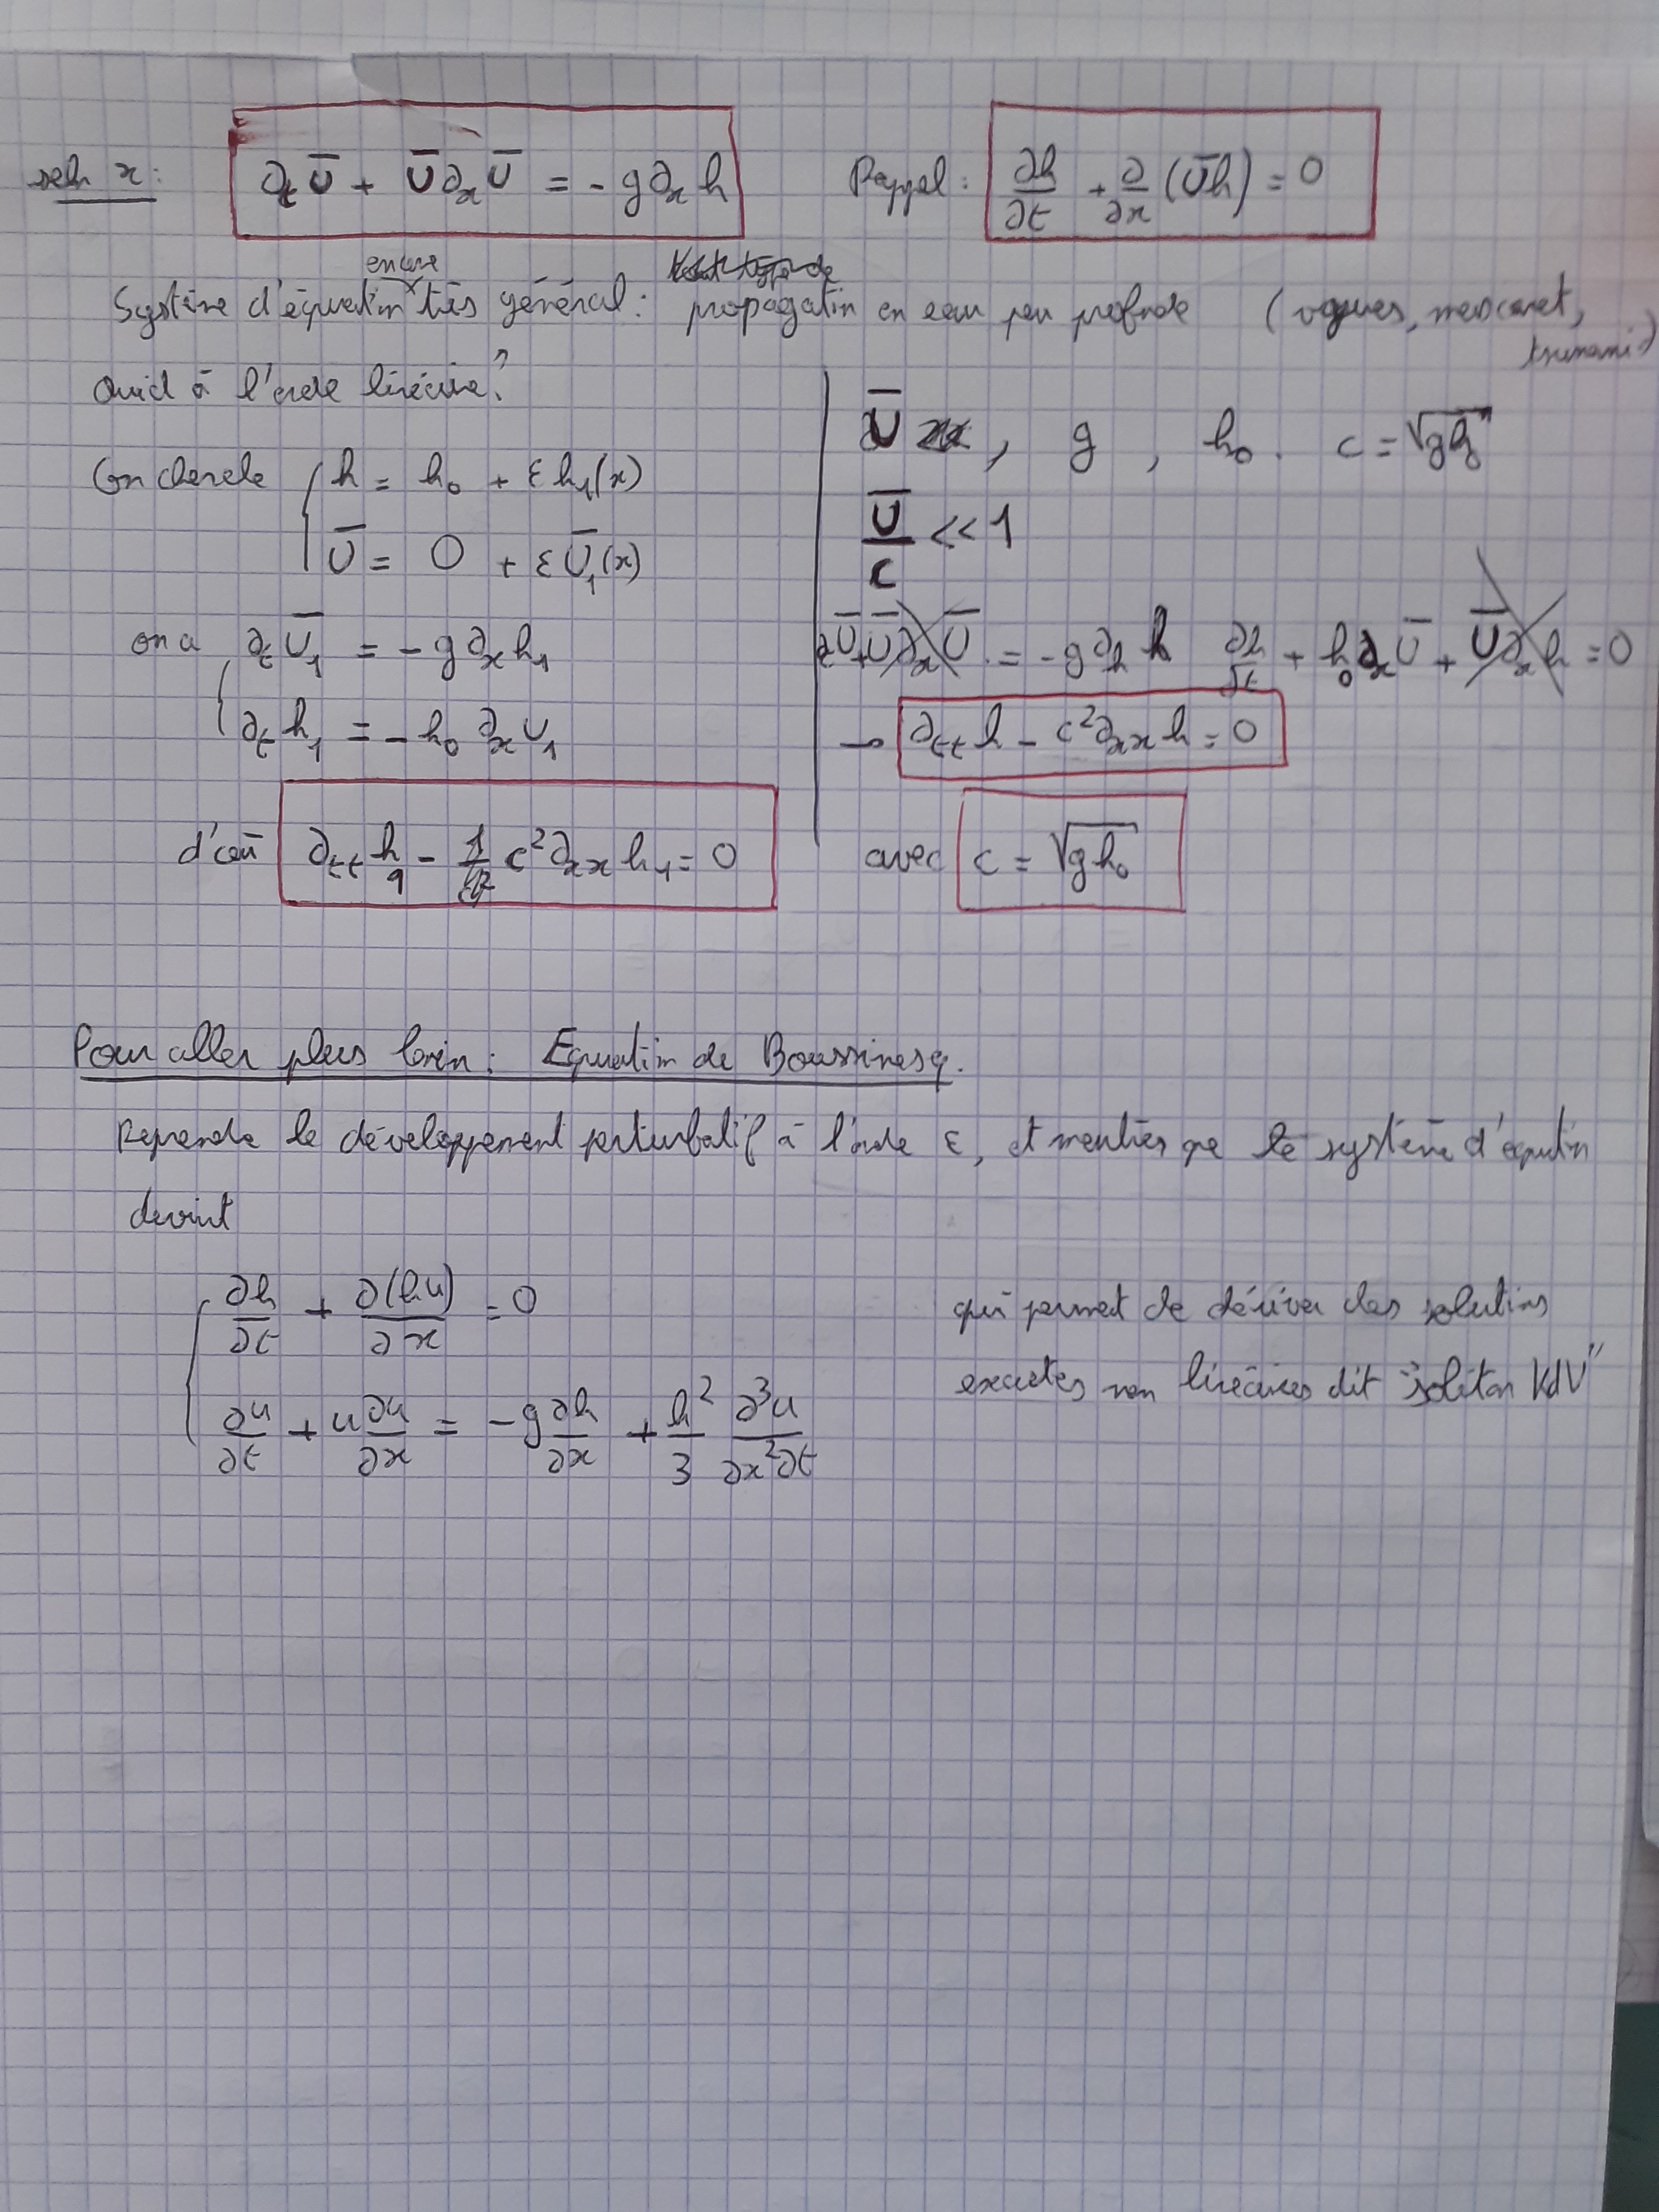 selon x : ∂t Ū + Ū ∂x Ū = - g ∂x h Rappel : ∂h/∂t + ∂/∂x (Ūh) = 0
encore
Système d'équation très général : propagation en eau peu profonde (vagues, mascaret,
tsunami)
Quid à l'ordre linéaire ?
Ū , g , h₀ . c = √gh₀
On cherche { h = h₀ + εh₁(x)
Ū = 0 + εŪ₁(x)
Ū/c << 1
on a { ∂t Ū₁ = - g ∂x h₁
∂t h₁ = - h₀ ∂x U₁
∂tŪ + Ū∂xŪ = - g∂h h ∂h/∂t + h₀ ∂x Ū + Ū∂x h = 0
→ ∂tt h - c² ∂xx h = 0
d'où ∂tt h₁ - c² ∂xx h₁ = 0 avec c = √gh₀
Pour aller plus loin : Equation de Boussinesq.
Reprendre le développement perturbatif à l'ordre ε, et montrer que le système d'équation
devient
{ ∂h/∂t + ∂(hu)/∂x = 0
∂u/∂t + u ∂u/∂x = - g ∂h/∂x + h²/3 ∂³u/∂x²∂t
qui permet de dériver des solutions
exactes non linéaires dit "soliton KdV"